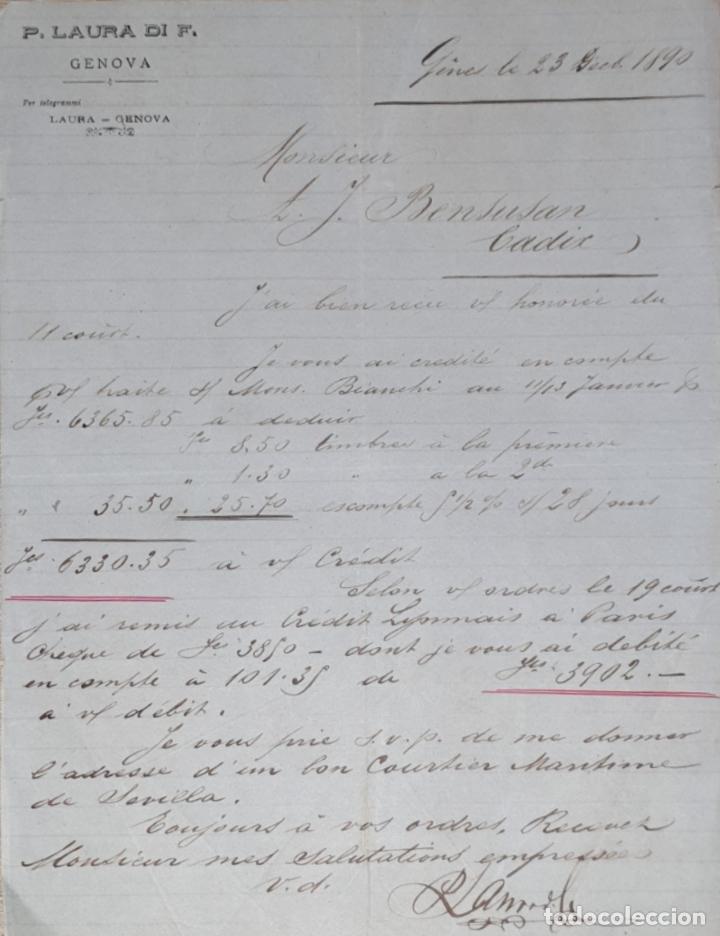 P. LAURA DI F.
GENOVA
Per telegrammi
LAURA – GENOVA
Gênes le 23 Decb. 1890
Monsieur
J. Bensusan
Cadix
J'ai bien reçu v/ honorée du
11 court.
Je vous ai credité en compte
v/ traite s/ Mons. Bianchi au 11/13 Janvier
Frs. 6365.85 à deduir
Frs 8.50 timbres à la première
" 1.30 " a la 2de
" " 35.50 " 25.70 escompte 5 1/2 % s/ 28 jours
Frs. 6330.35 à v/ Crédit
Selon v/ ordres le 19 court
j'ai remis au Crédit Lyonnais à Paris
cheque de Frs 3850 – dont je vous ai debité
en compte à 101.35 de Frs. 3902.–
à v/ débit.
Je vous prie s.v.p. de me donner
l'adresse d'un bon Courtier Maritime
de Sevilla.
Toujours à vos ordres, Recevez
Monsieur mes salutations empressées
v. d.
todocoleccion